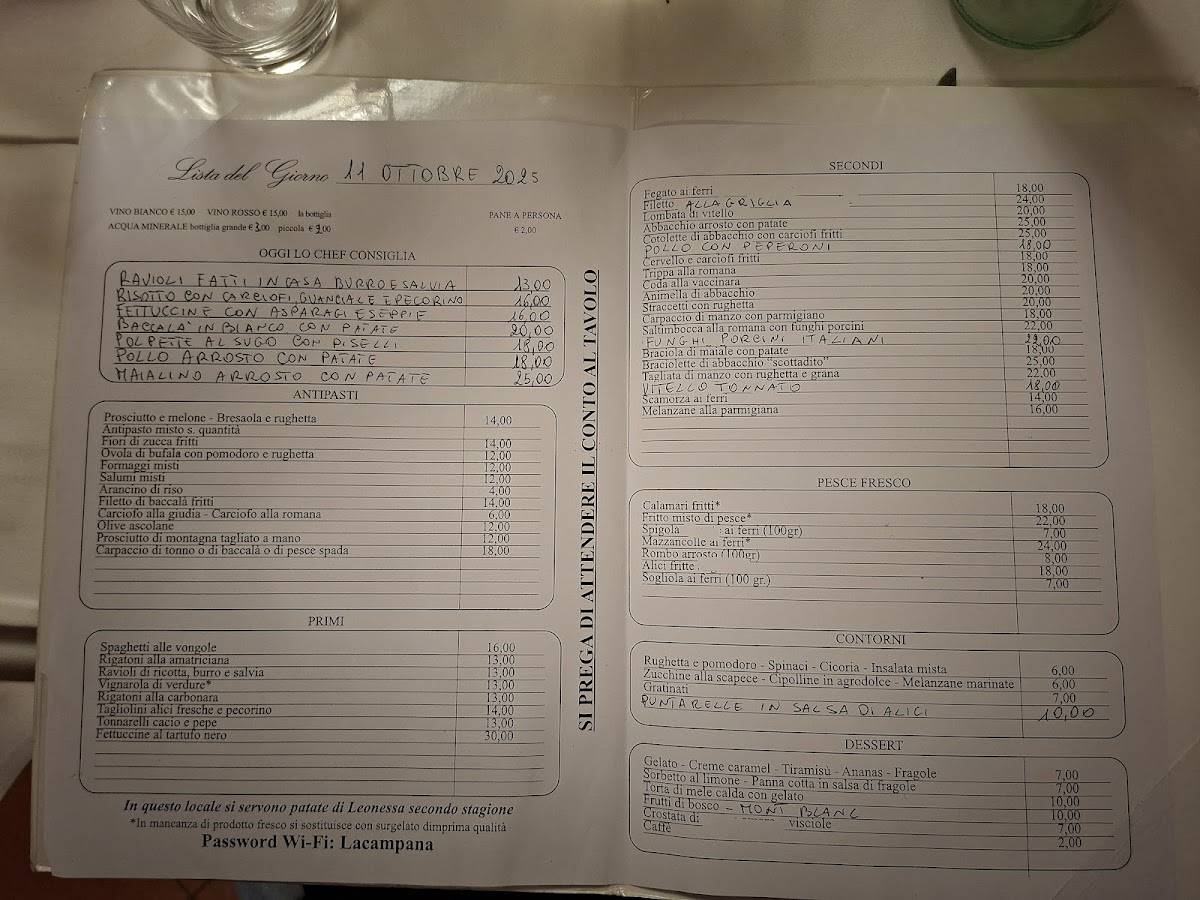 Lista del Giorno 11 OTTOBRE 2025
VINO BIANCO € 15,00 VINO ROSSO € 15,00 la bottiglia
ACQUA MINERALE bottiglia grande € 3,00 piccola € 2,00
PANE A PERSONA
€ 2,00
OGGI LO CHEF CONSIGLIA
RAVIOLI FATTI IN CASA BURRO E SALVIA 13,00
RISOTTO CON CARCIOFI, GUANCIALE E PECORINO 16,00
FETTUCCINE CON ASPARAGI E SEPPIE 16,00
BACCALA' IN BIANCO CON PATATE 20,00
POLPETTE AL SUGO CON PISELLI 18,00
POLLO ARROSTO CON PATATE 18,00
MAIALINO ARROSTO CON PATATE 25,00
ANTIPASTI
Prosciutto e melone - Bresaola e rughetta 14,00
Antipasto misto s. quantità
Fiori di zucca fritti 14,00
Ovola di bufala con pomodoro e rughetta 12,00
Formaggi misti 12,00
Salumi misti 12,00
Arancino di riso 4,00
Filetto di baccalà fritti 14,00
Carciofo alla giudia - Carciofo alla romana 6,00
Olive ascolane 12,00
Prosciutto di montagna tagliato a mano 12,00
Carpaccio di tonno o di baccalà o di pesce spada 18,00
PRIMI
Spaghetti alle vongole 16,00
Rigatoni alla amatriciana 13,00
Ravioli di ricotta, burro e salvia 13,00
Vignarola di verdure* 13,00
Rigatoni alla carbonara 13,00
Tagliolini alici fresche e pecorino 14,00
Tonnarelli cacio e pepe 13,00
Fettuccine al tartufo nero 30,00
In questo locale si servono patate di Leonessa secondo stagione
*In mancanza di prodotto fresco si sostituisce con surgelato dimprima qualità
Password Wi-Fi: Lacampana
SI PREGA DI ATTENDERE IL CONTO AL TAVOLO
SECONDI
Fegato ai ferri 18,00
Filetto ALLA GRIGLIA 24,00
Lombata di vitello 20,00
Abbacchio arrosto con patate 25,00
Cotolette di abbacchio con carciofi fritti 25,00
POLLO CON PEPERONI 18,00
Cervello e carciofi fritti 18,00
Trippa alla romana 18,00
Coda alla vaccinara 20,00
Animella di abbacchio 20,00
Straccetti con rughetta 20,00
Carpaccio di manzo con parmigiano 18,00
Saltimbocca alla romana con funghi porcini 22,00
FUNGHI PORCINI ITALIANI
Braciola di maiale con patate 18,00
Braciolette di abbacchio "scottadito" 25,00
Tagliata di manzo con rughetta e grana 22,00
VITELLO TONNATO 18,00
Scamorza ai ferri 14,00
Melanzane alla parmigiana 16,00
PESCE FRESCO
Calamari fritti* 18,00
Fritto misto di pesce* 22,00
Spigola ai ferri (100gr) 7,00
Mazzancolle ai ferri* 24,00
Rombo arrosto (100gr) 8,00
Alici fritte 18,00
Sogliola ai ferri (100 gr.) 7,00
CONTORNI
Rughetta e pomodoro - Spinaci - Cicoria - Insalata mista 6,00
Zucchine alla scapece - Cipolline in agrodolce - Melanzane marinate 6,00
Gratinati 7,00
PUNTARELLE IN SALSA DI ALICI 10,00
DESSERT
Gelato - Creme caramel - Tiramisù - Ananas - Fragole 7,00
Sorbetto al limone - Panna cotta in salsa di fragole 7,00
Torta di mele calda con gelato 10,00
Frutti di bosco - MONT BLANC 10,00
Crostata di visciole 7,00
Caffè 2,00